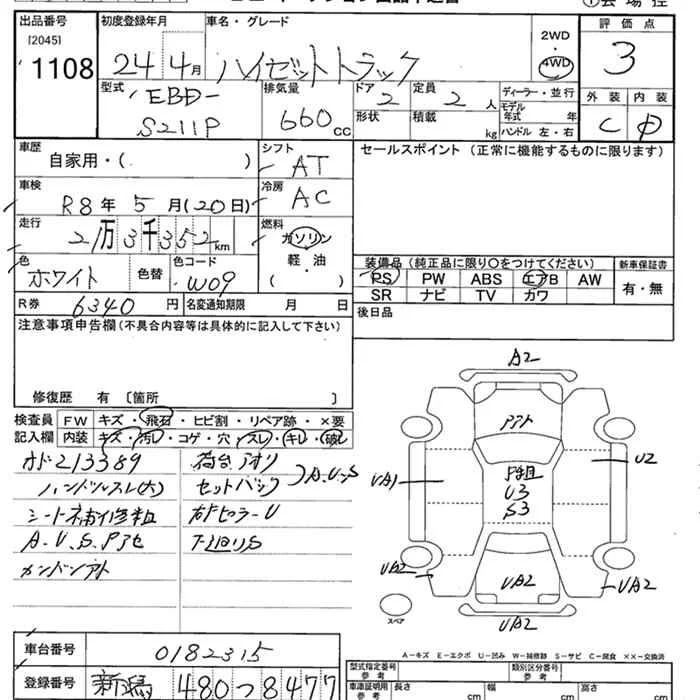 出品番号
[2045]
1108
初度登録年月
24年4月
車名・グレード
ハイゼットトラック
2WD
・
4WD
評価点
3
外装 内装
C D
型式
EBD-
S211P
排気量
660 CC
ドア
2
定員
2 人
形状
積載
kg
ディーラー・並行
モデル
年式 年
ハンドル 左・右
車歴
自家用・( )
シフト
AT
セールスポイント (正常に機能するものに限ります)
車検
R8年5月(20日)
冷房
AC
走行
2万3千352km
燃料
ガソリン
軽・油
( )
色
ホワイト
色替
色コード
W09
装備品 (純正品に限り○をつけてください)
PS PW ABS エアB AW
SR ナビ TV カワ
新車保証書
有・無
R券
6340円
名変通知期限 月 日
後日品
注意事項申告欄(不具合内容等は具体的に記入して下さい)
修復歴 有 [箇所 ]
検査員
記入欄
FW キズ・飛石・ヒビ割・リペア跡・×要
内装 キズ・汚レ・コゲ・穴・スレ・キレ・破レ
オド213389
ハンドルスレ(大)
シート補修粗
A.U.S.P
荷台アオリ
セットバック
A.U.S
右ピラーU
下廻りS
A2
U3
S3
UA1
U2
UA2
UA2
UA2
UA2
スペア
A-キズ E-エクボ U-凹み W-補修跡 S-サビ C-腐食 XX-交換済
車台番号
0182315
登録番号
新潟 480つ8477
型式指定番号
参考
類別区分番号
参考
車庫証明用
参考
長さ
幅
高さ